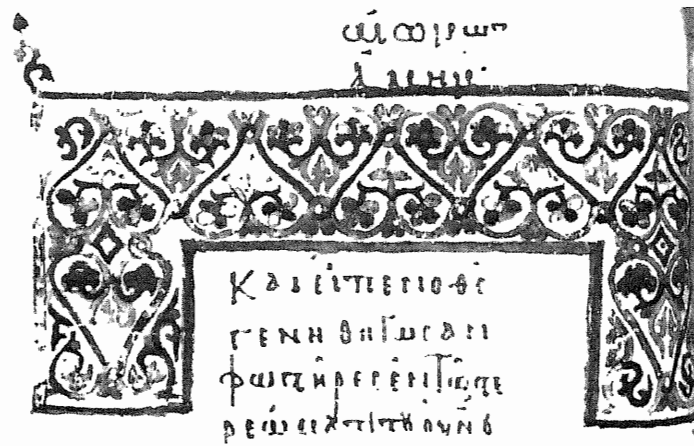 ἀμήν
Καὶ εἶπεν ὁ θς
γενηθήτωσαν
φωστῆρες ἐν τῶ στε
ρεώματι τοῦ οὐνου